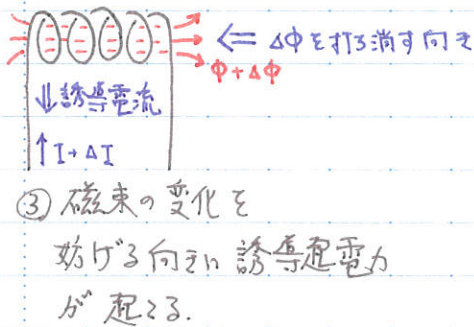 ⇐ ΔΦを打ち消す向き
Φ+ΔΦ
↓誘導電流
↑I+ΔI
③磁束の変化を
妨げる向きに誘導起電力
が起こる.